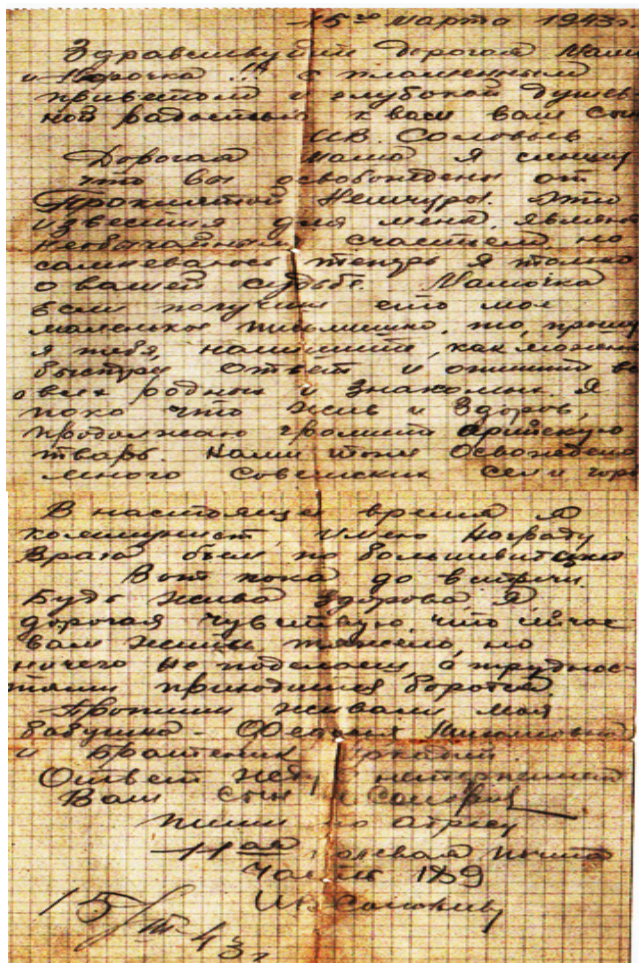 15го марта 1943г.
Здравствуйте дорогая Мама
и !!! с пламенным
приветом и глубокой душев-
ной радостью к вам ваш сын
Ив. Соловьев
Дорогая мама я слышу
что вы освобождены от
Проклятой Немчуры. Эти
известия для меня явля
необычайным счастьем, но
сомневаюсь теперь я только
о вашей судьбе. Мамочка
если получиш ето мое
маленькое письмишко, то, прошу
я тебя, напишите, как можно
быстрей ответ и опишите
о всех родных и знакомых. Я
пока что жив и здоров,
продолжаю громить арийскую
тварь. Нами
много советских сел и горо
В настоящее время я
коммунист, имею награду
Врага бьем по большевитски
Вот пока до встречи.
Будь жива здорова Я
дорогая чувствую, что сейчас
вам жить тяжело, но
ничего не поделаеш, с труднос-
тями приходится бороться.
живали моя
бабушка -
и братеник
Ответ жду с нетерпением
Ваш сын Соловьев
пиши по адресу
11ая полевая почта
часть 189
Ив Соловьев
15/III-43г